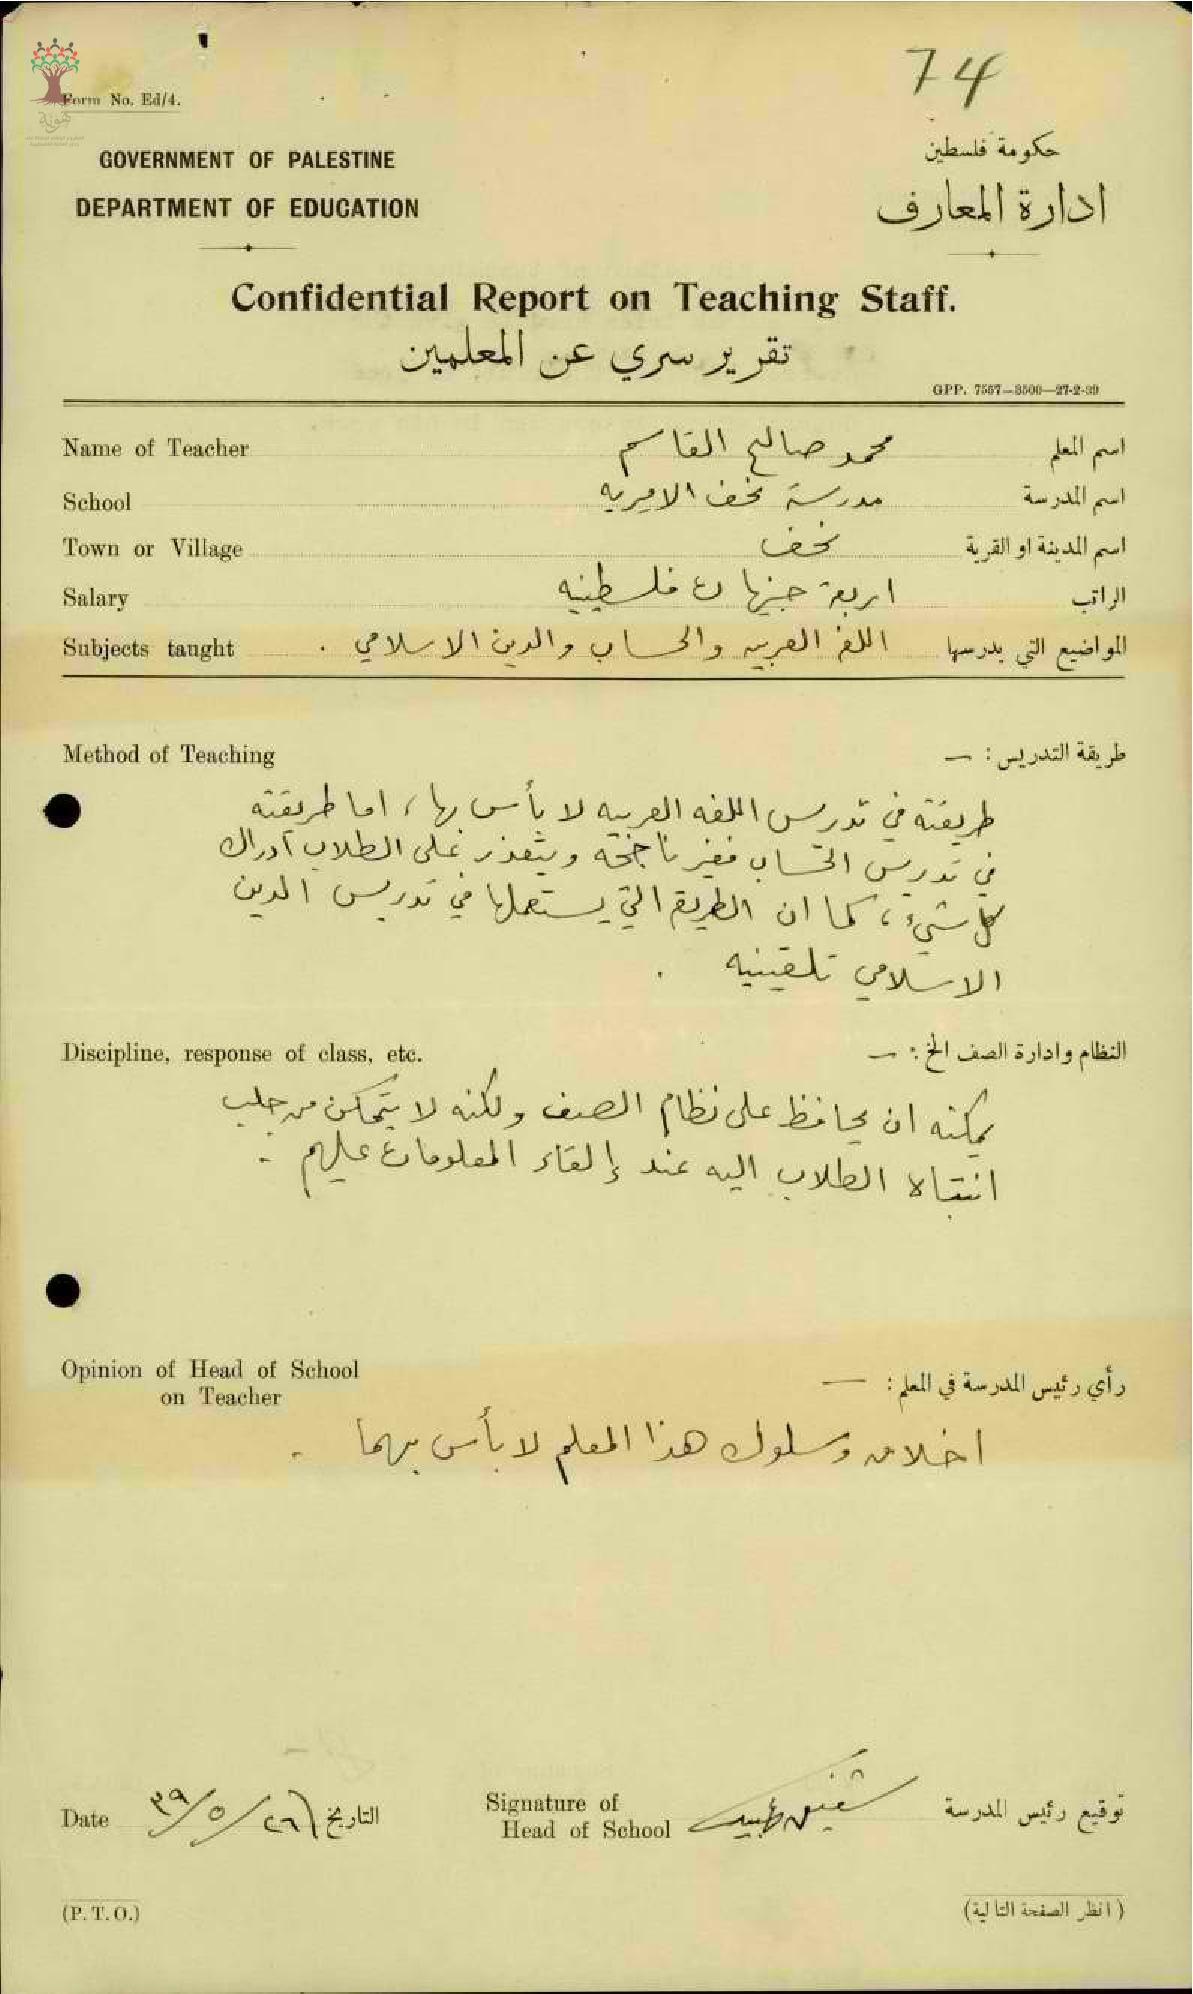 74
Form No. Ed/4.
كينونة
GOVERNMENT OF PALESTINE
حكومة فلسطين
DEPARTMENT OF EDUCATION
ادارة المعارف
Confidential Report on Teaching Staff.
تقرير سري عن المعلمين
GPP. 7557—3500—27-2-39
Name of Teacher محمد صالح القاسم اسم المعلم
School مدرسة نحف الاميريه اسم المدرسة
Town or Village نحف اسم المدينة او القرية
Salary اربعة جنيهات فلسطينيه الراتب
Subjects taught اللغة العربيه والحساب والدين الاسلامي . المواضيع التي يدرسها
Method of Teaching طريقة التدريس : —
طريقته في تدريس اللغه العربيه لا بأس بها ، اما طريقته
في تدريس الحساب فغير ناجحة ويتعذر على الطلاب ادراك
كل شيء ، كما ان الطريقة التي يستعملها في تدريس الدين
الاسلامي تلقينيه .
Discipline, response of class, etc. النظام وادارة الصف الخ : —
يمكنه ان يحافظ على نظام الصف ولكنه لا يتمكن من جلب
انتباه الطلاب اليه عند إلقاء المعلومات عليهم .
Opinion of Head of School رأي رئيس المدرسة في المعلم : —
on Teacher
اخلاق وسلوك هذا المعلم لا بأس بهما .
Date ٢٦/٥/٣٩ التاريخ
Signature of توقيع رئيس المدرسة
Head of School
(P. T. O.) (انظر الصفحة التالية)